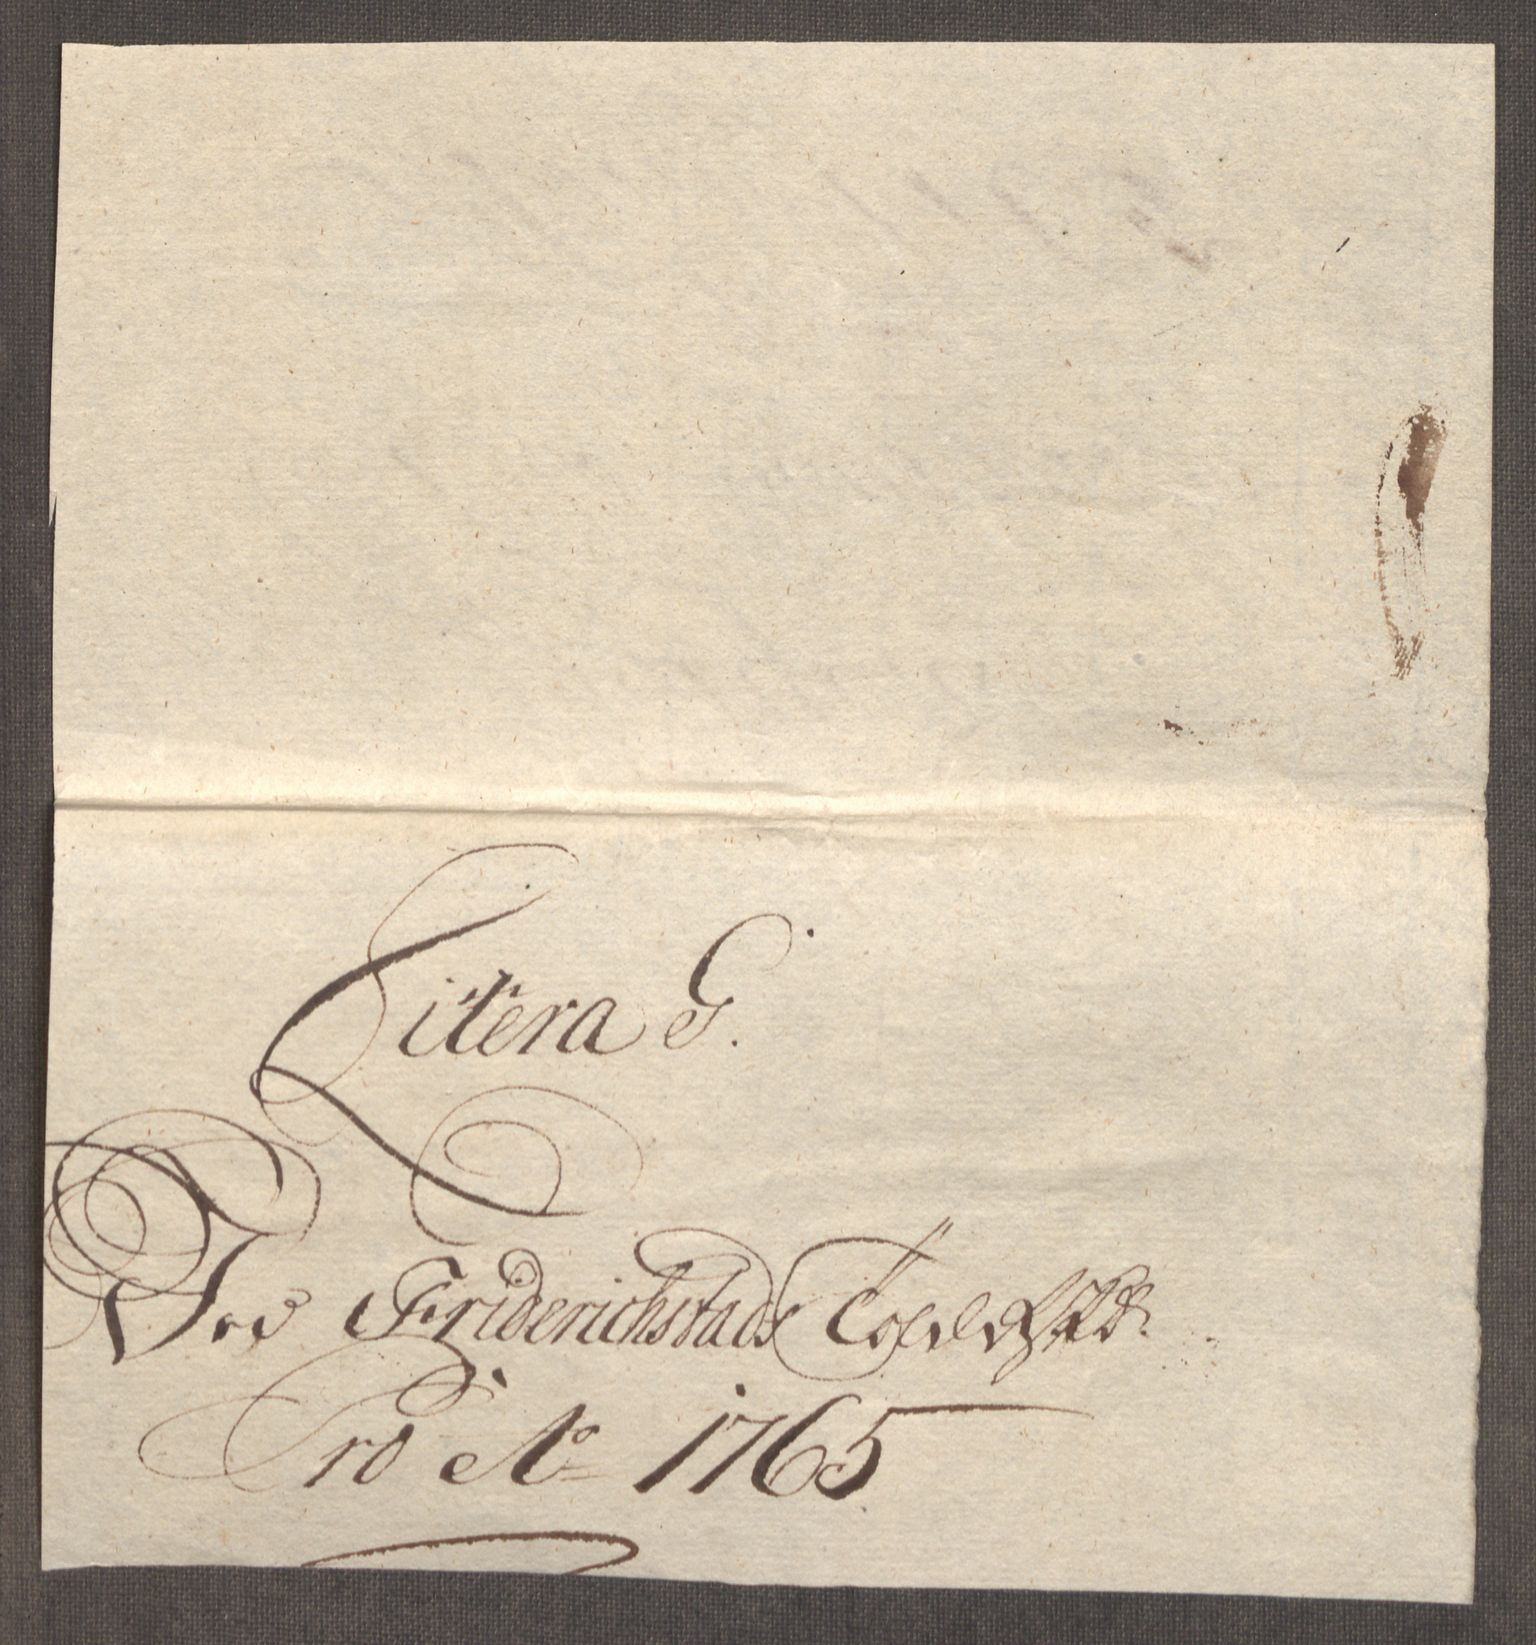 Litera G.
Ved Friderichstads
Pro Ao 1765